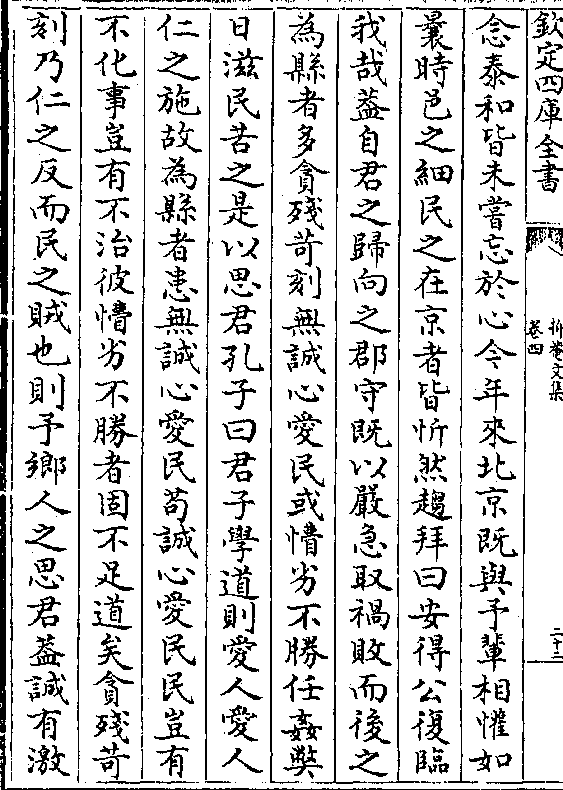 欽定四庫全書
抑菴文集
卷四
二十二
念泰和皆未嘗忘於心今年來北京既與予輩相懽如
曩時邑之細民之在京者皆忻然趨拜曰安得公復臨
我哉葢自君之歸向之郡守既以嚴急取禍敗而後之
為縣者多貪殘苛刻無誠心愛民或懵劣不勝任姦獘
日滋民苦之是以思君孔子曰君子學道則愛人愛人
仁之施故為縣者患無誠心愛民苟誠心愛民民豈有
不化事豈有不治彼懵劣不勝者固不足道矣貪殘苛
刻乃仁之反而民之賊也則予鄉人之思君葢誠有激